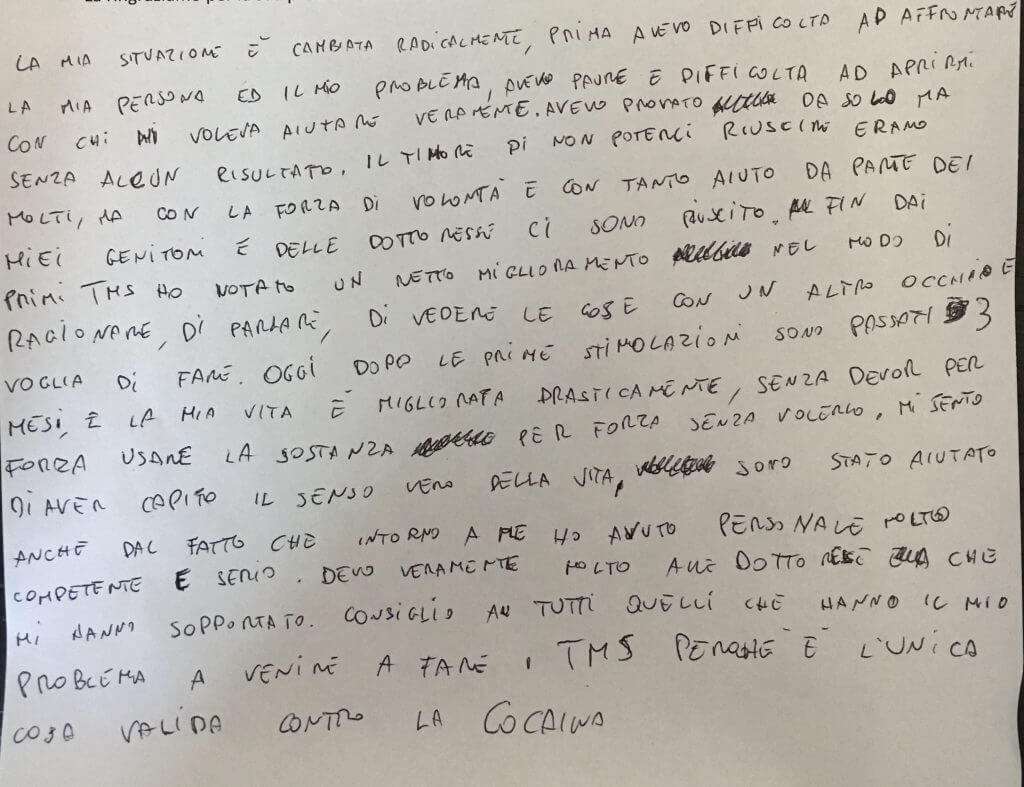 LA MIA SITUAZIONE È CAMBIATA RADICALMENTE, PRIMA AVEVO DIFFICOLTA AD AFFRONTARE
LA MIA PERSONA ED IL MIO PROBLEMA, AVEVO PAURE E DIFFICOLTA AD APRIRMI
CON CHI MI VOLEVA AIUTARE VERAMENTE. AVEVO PROVATO DA SOLO MA
SENZA ALCUN RISULTATO. IL TIMORE DI NON POTERCI RIUSCIRE ERANO
MOLTI, MA CON LA FORZA DI VOLONTÀ E CON TANTO AIUTO DA PARTE DEI
MIEI GENITORI E DELLE DOTTORESSE CI SONO RIUSCITO. FIN DAI
PRIMI TMS HO NOTATO UN NETTO MIGLIORAMENTO NEL MODO DI
RAGIONARE, DI PARLARE, DI VEDERE LE COSE CON UN ALTRO OCCHIO E
VOGLIA DI FARE. OGGI DOPO LE PRIME STIMOLAZIONI SONO PASSATI 3
MESI, E LA MIA VITA È MIGLIORATA DRASTICAMENTE, SENZA DEVOR PER
FORZA USARE LA SOSTANZA PER FORZA SENZA VOLERLO. MI SENTO
DI AVER CAPITO IL SENSO VERO DELLA VITA, SONO STATO AIUTATO
ANCHE DAL FATTO CHE INTORNO A ME HO AVUTO PERSONALE MOLTO
COMPETENTE E SERIO. DEVO VERAMENTE MOLTO ALLE DOTTORESSE CHE
MI HANNO SOPPORTATO. CONSIGLIO A TUTTI QUELLI CHE HANNO IL MIO
PROBLEMA A VENIRE A FARE I TMS PERCHÈ È L'UNICA
COSA VALIDA CONTRO LA COCAINA